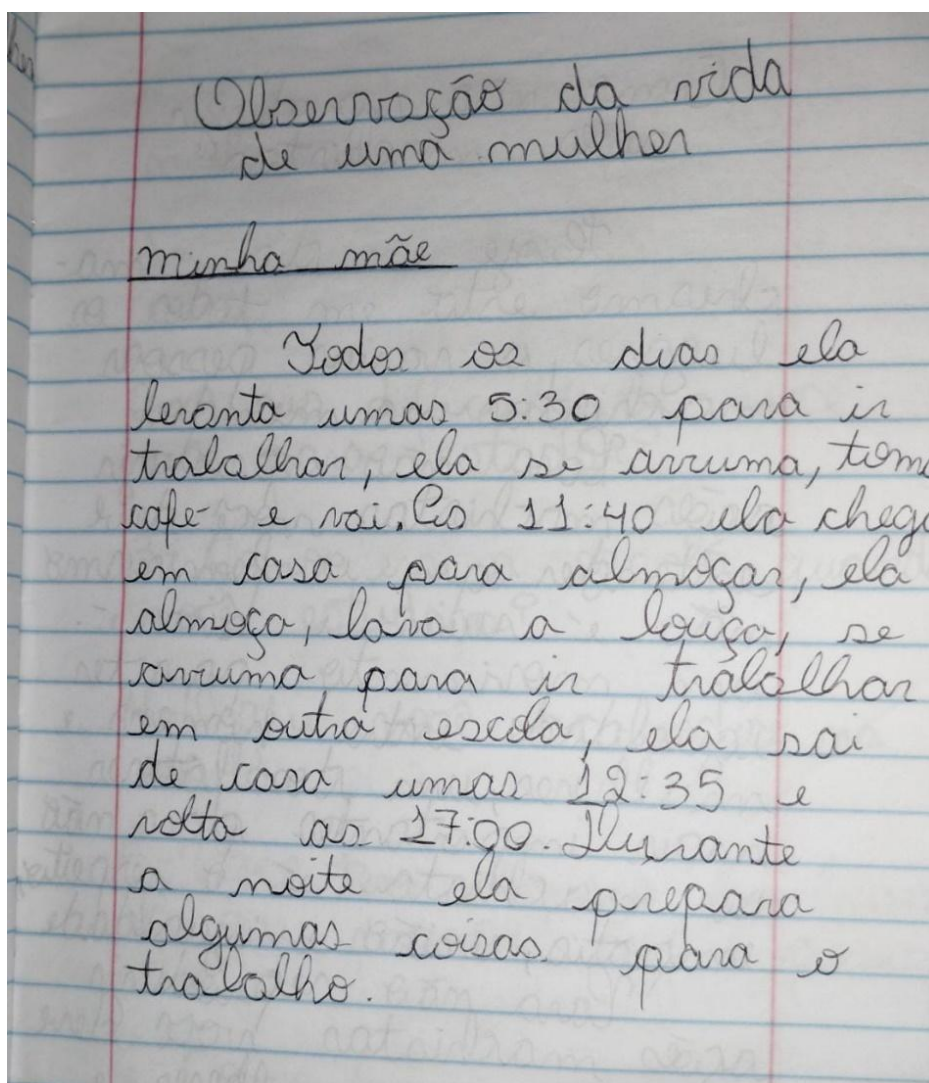 Observação da vida
de uma mulher
minha mãe
Todos os dias ela
levanta umas 5:30 para ir
trabalhar, ela se arruma, tom
café e vai. As 11:40 ela cheg
em casa para almoçar, ela
almoça, lava a louça, se
arruma para ir trabalhar
em outra escola, ela sai
de casa umas 12:35 e
volta as 17:00. Durante
a noite ela prepara
algumas coisas para o
trabalho.